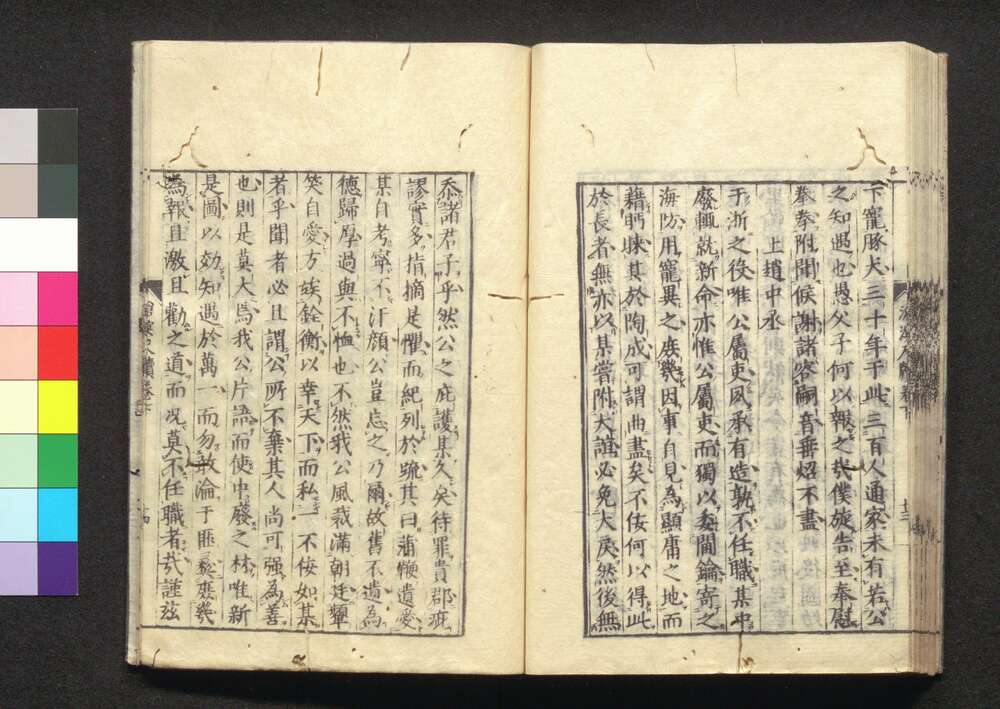 下寵豚犬三十年于此三百人通家未有若公
之知遇也愚父子何以報之哉僕旋告至奉慰
拳拳附聞候謝諸容嗣音垂炤不盡
上趙中丞
于浙之役唯公屬吏夙承有造孰不任職某中
廢輒就新命亦惟公屬吏而獨以委間鑰寄之
海防用寵異之庶幾因事自見為顯庸之地而
藉眄睞其於陶成可謂曲盡矣不佞何以得此
於長者無亦以某嘗附大誼必免大戾然後無
忝諸君子乎然公之庇護某久矣待罪貴郡疵
謬實多指摘是懼而紀列於疏其曰蒲鞭遺愛
某自考寧不汗顏公豈忘之乃爾故舊不遺為
德歸厚過與不恤也不然我公風裁滿朝廷顰
笑自愛方族銓衡以幸天下而私一不佞如某
者乎聞者必且謂公所不棄其人尚可强為善
也則是莫大焉我公片語而使中廢之材唯新
是圖以効知遇於萬一而勿敢淪于匪彝庶幾
為報且激且勸之道而况莫不任職者哉謹玆